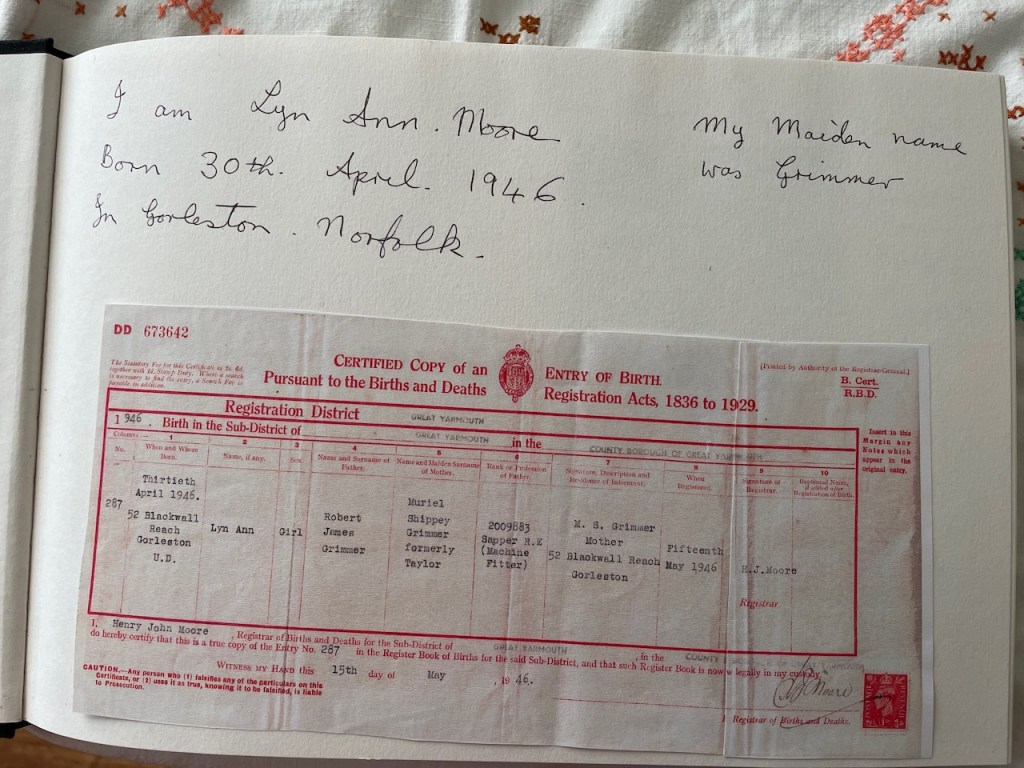 I am Lyn Ann. Moore
Born 30th. April. 1946.
In Gorleston. Norfolk.
My Maiden name
was Grimmer
DD 673642
The Statutory Fee for this Certificate is 2s. 6d.
together with 1d. Stamp Duty. Where a search
is necessary to find the entry, a Search Fee is
payable in addition.
CERTIFIED COPY of an ENTRY OF BIRTH.
Pursuant to the Births and Deaths Registration Acts, 1836 to 1929.
[Printed by Authority of the Registrar-General.]
B. Cert.
R.B.D.
Registration District GREAT YARMOUTH
1946. Birth in the Sub-District of GREAT YARMOUTH in the COUNTY BOROUGH OF GREAT YARMOUTH
Insert in this
Margin any
Notes which
appear in the
original entry.
Columns:— 1 2 3 4 5 6 7 8 9 10
No.
When and Where
Born.
Name, if any.
Sex.
Name and Surname of
Father.
Name and Maiden Surname
of Mother.
Rank or Profession
of Father.
Signature, Description and
Residence of Informant.
When
Registered.
Signature of
Registrar.
Baptismal Name,
if added after
Registration of Birth.
287
Thirtieth
April 1946.
52 Blackwall
Reach
Gorleston
U.D.
Lyn Ann
Girl
Robert
James
Grimmer
Muriel
Shippey
Grimmer
formerly
Taylor
2009883
Sapper R.E
(Machine
Fitter)
M. S. Grimmer
Mother
52 Blackwall Reach
Gorleston
Fifteenth
May 1946
H.J.Moore
Registrar.
I, Henry John Moore, Registrar of Births and Deaths for the Sub-District of GREAT YARMOUTH, in the COUNTY BOROUGH OF GREAT YARMOUTH
do hereby certify that this is a true copy of the Entry No. 287 in the Register Book of Births for the said Sub-District, and that such Register Book is now legally in my custody.
WITNESS MY HAND this 15th day of May, 1946.
CAUTION.—Any person who (1) falsifies any of the particulars on this
Certificate, or (2) uses it as true, knowing it to be falsified, is liable
to Prosecution.
H J Moore
Registrar of Births and Deaths.